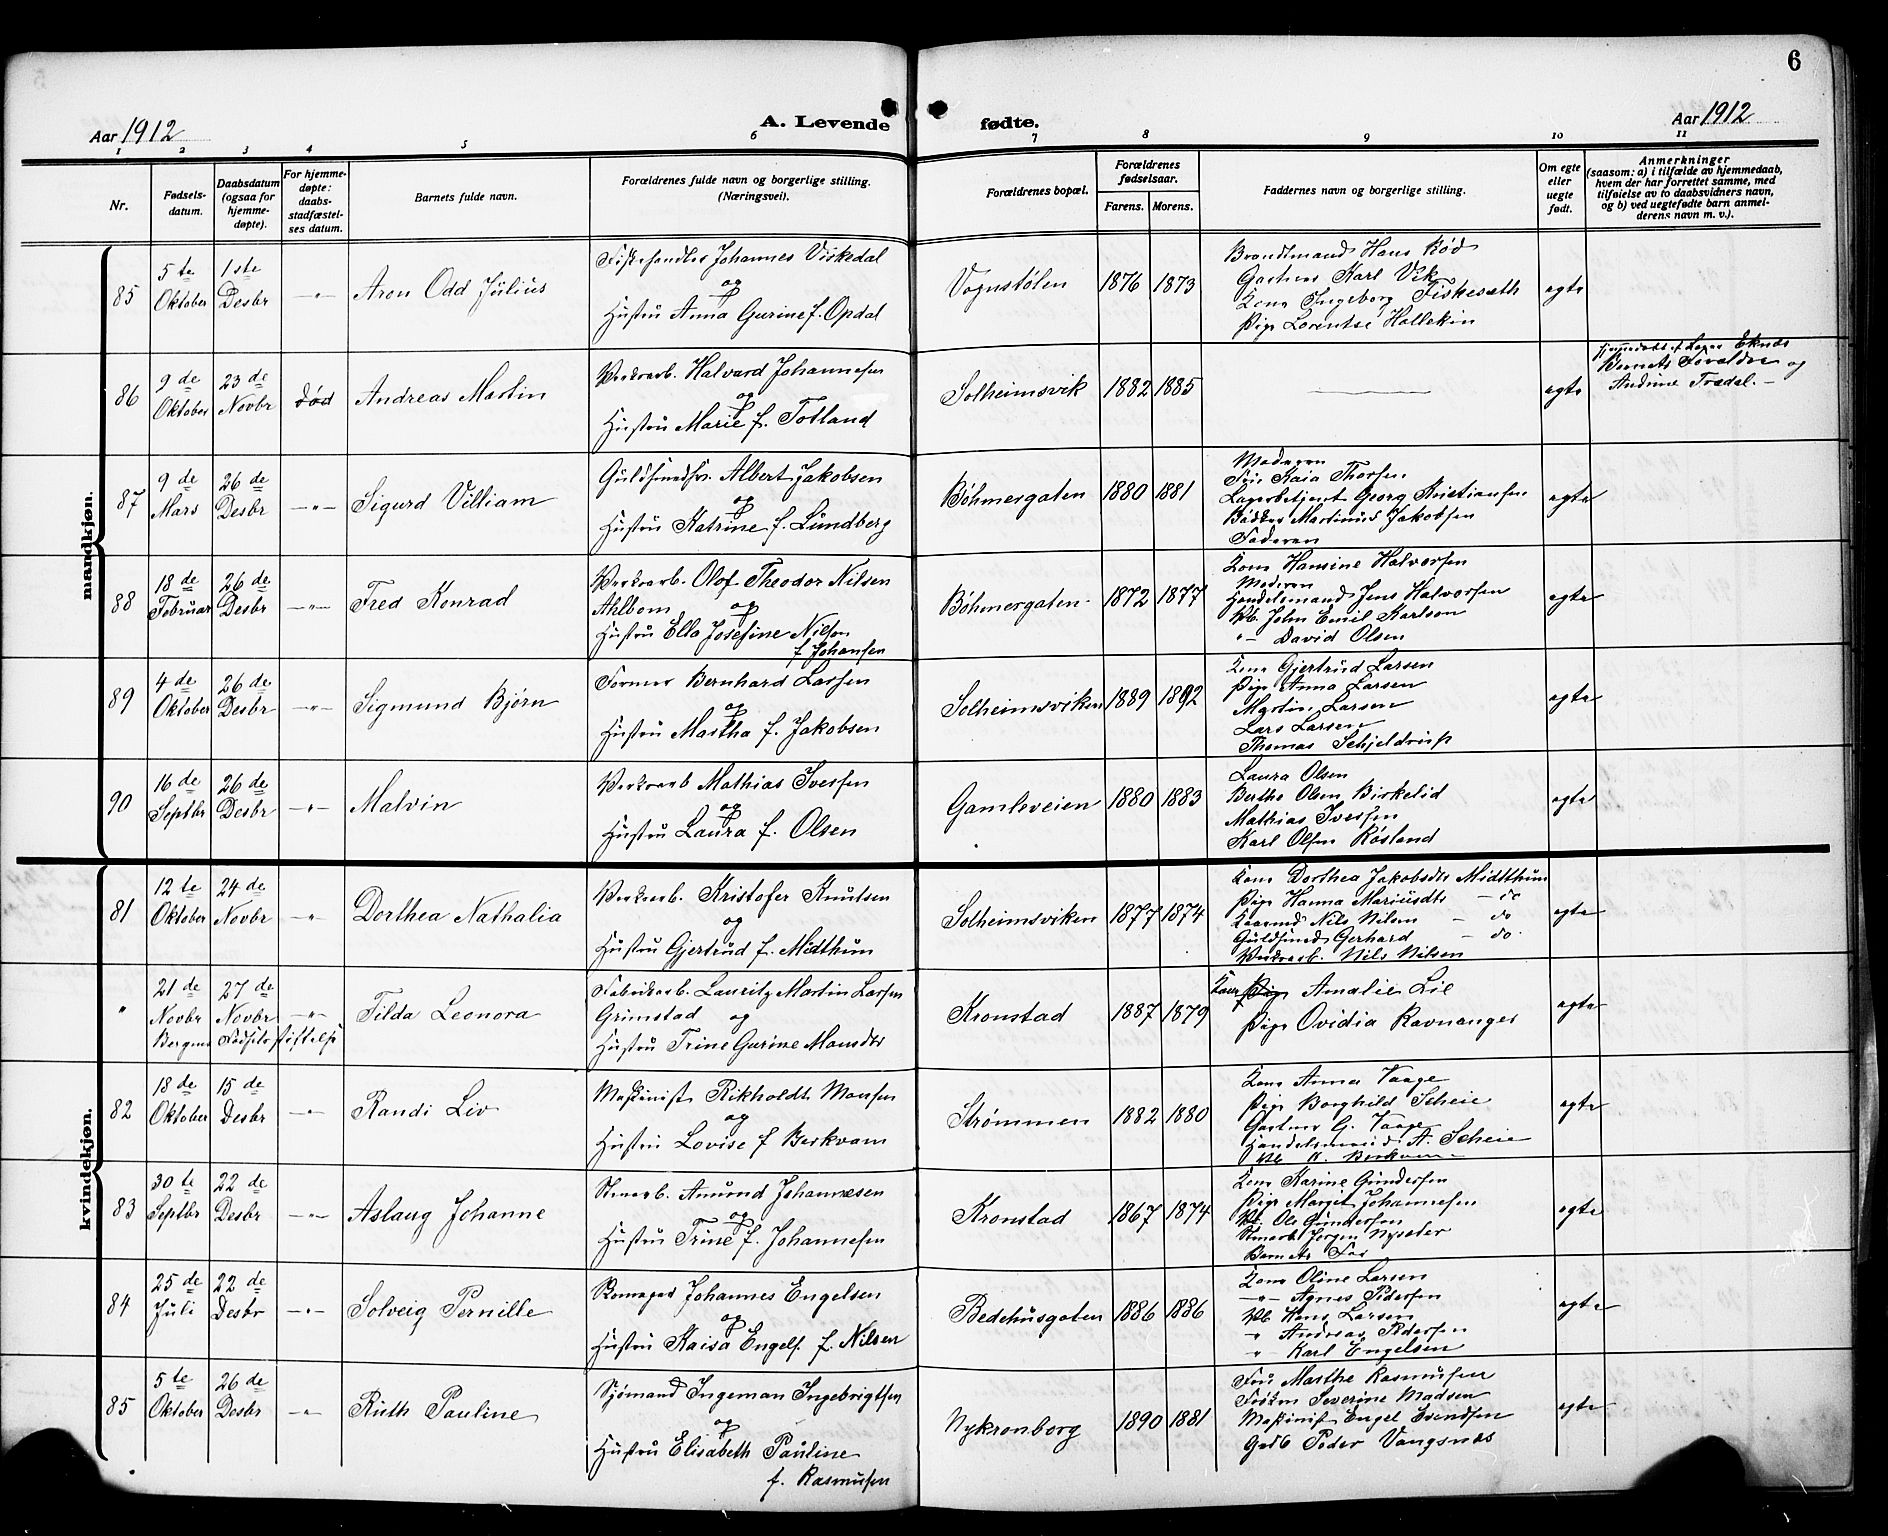 6
Aar 1912 A. Levende fødte. Aar 1912
1 2 3 4 5 6 7 8 9 10 11
Nr.
Fødsels-
datum.
Daabsdatum
(ogsaa for
hjemme-
døpte).
For hjemme-
døpte:
daabs-
stadfæstel-
ses datum.
Barnets fulde navn.
Forældrenes fulde navn og borgerlige stilling.
(Næringsvei).
Forældrenes bopæl.
Forældrenes
fødselsaar.
Farens. Morens.
Faddernes navn og borgerlige stilling.
Om egte
eller
uegte
født.
Anmerkninger
(saasom: a) i tilfælde av hjemmedaab,
hvem der har forrettet samme, med
tilføielse av to daabsvidners navn,
og b) ved uegtefødte barn anmel-
derens navn m. v.).
mandkjøn.
85
5te
Oktober
1ste
Desbr
-"-
Aron Odd Julius
Fiskehandler Johannes Viskedal
og
Hustru Anna Gurine f. Opdal
Vognstølen
1876 1873
Brandtmand Hans Rød
Gartner Karl Vik
Kone Ingeborg Fiskeseth
Pige Lorentse Hallekin
egte
86
9de
Oktober
23de
Novbr
død
Andreas Martin
Verksarb. Halvard Johannesen
og
Hustru Marie f. Totland
Solheimsvik
1882 1885
egte
Hjemmedøbt af Eknes
Barnets Forældre og
Andrine Trædal. -
87
9de
Mars
26de
Desbr
-"-
Sigurd Villiam
Guldsmedsv. Albert Jakobsen
og
Hustru Katrine f. Lundberg
Bøhmergaten
1880 1881
Moderen
Frk Kaia Thorsen
Lagerbetjent Georg Kristiansen
Bødker Martinus Jakobsen
Faderen
egte
88
18de
Februar
26de
Desbr
-"-
Fred Konrad
Verksarb. Olof Theodor Nilsen
Ahlbom og
Hustru Ella Josefine Nilsen
f Johansen
Bøhmergaten
1872 1877
Kone Hansine Halvorsen
Moderen
Handelsmand Jens Halvorsen
Vb. John Emil Karlson
"- David Olsen
egte
89
4de
Oktober
26de
Desbr
-"-
Sigmund Bjørn
Former Bernhard Larsen
og
Hustru Martha f. Jakobsen
Solheimsviken
1889 1892
Kone Gjertrud Larsen
Pige Anna Larsen
Martin Larsen
Lars Larsen
Thomas Schjeldrup
egte
90
16de
Septbr
26de
Desbr
-"-
Malvin
Verksarb Mathias Iversen
og
Hustru Laura f. Olsen
Gamleveien
1880 1883
Laura Olsen
Berthe Olsen Birkelid
Mathias Iversen
Karl Olsen Røsland
egte
kvindekjøn.
81
12te
Oktober
24de
Novbr
-"-
Dorthea Nathalia
Verksarb. Kristofer Knutsen
og
Hustru Gjertrud f. Midthun
Solheimsviken
1877 1874
Kone Dorthea Jakobsdtr Midtthun
Pige Hanna Mariusdtr - do
Nils Nilsen - do
Guldsmed Gerhard - do.
Verksarb. Nils Nilsen
egte
"
21de
Novbr
Bergens
27de
Novbr
Fødselsstiftelse
-"-
Tilda Leonora
Fabrikarb. Lauritz Martin Larsen
Grimstad og
Hustru Trine Gurine Monsdtr
Kronstad
1887 1879
Kone Pige Amalie Lie
Pige Ovidia Ravnanger
egte
82
18de
Oktober
15de
Desbr
-"-
Randi Liv
Maskinist Rikholdt Monsen
og
Hustru Lovise f Berkvam
Strømmen
1882 1880
Kone Anna Vaage
Pige Borghild Scheie
Gartner G. Vaage
Handelsmand A. Scheie
egte
83
30te
Septbr
22de
Desbr
-"-
Aslaug Johanne
Amund Johannesen
og
Hustru Trine f. Johannesen
Kronstad
1867 1874
Kone Karine Gundersen
Pige Margit Johannesen
Vb. Ole Gundersen
Jørgen Nysæter
Barnets Far
egte
84
25de
Juli
22de
Desbr
-"-
Solveig Pernille
Johannes Engelsen
og
Hustru Kaisa Engels. f. Nilsen
Bedehusgaten
1886 1886
Kone Oline Larsen
-"- Agnes Pedersen
Vb Hans Larsen
" Andreas Pedersen
"- Karl Engelsen
egte
85
5te
Oktober
26de
Desbr
-"-
Ruth Pauline
Sjømand Ingeman Ingebrigtsen
og
Hustru Elisabeth Pauline
f. Rasmusen
Nykronborg
1890 1881
Fru Marthe Rasmusen
Frøken Severine Madsen
Maskinist Engel Evendsen
Gdb Peder Vangsnes
egte